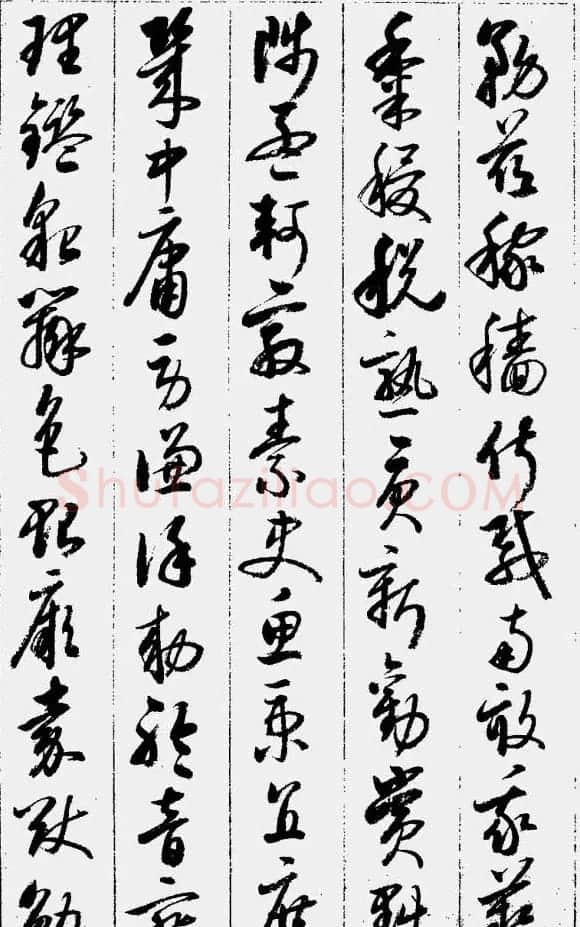 務茲稼穡俶載南畝我藝
黍稷稅熟貢新勸賞黜
陟孟軻敦素史魚秉直庶
幾中庸勞謙謹勅聆音察
理鑑貌辨色貽厥嘉猷勉
Shufaziliao.COM